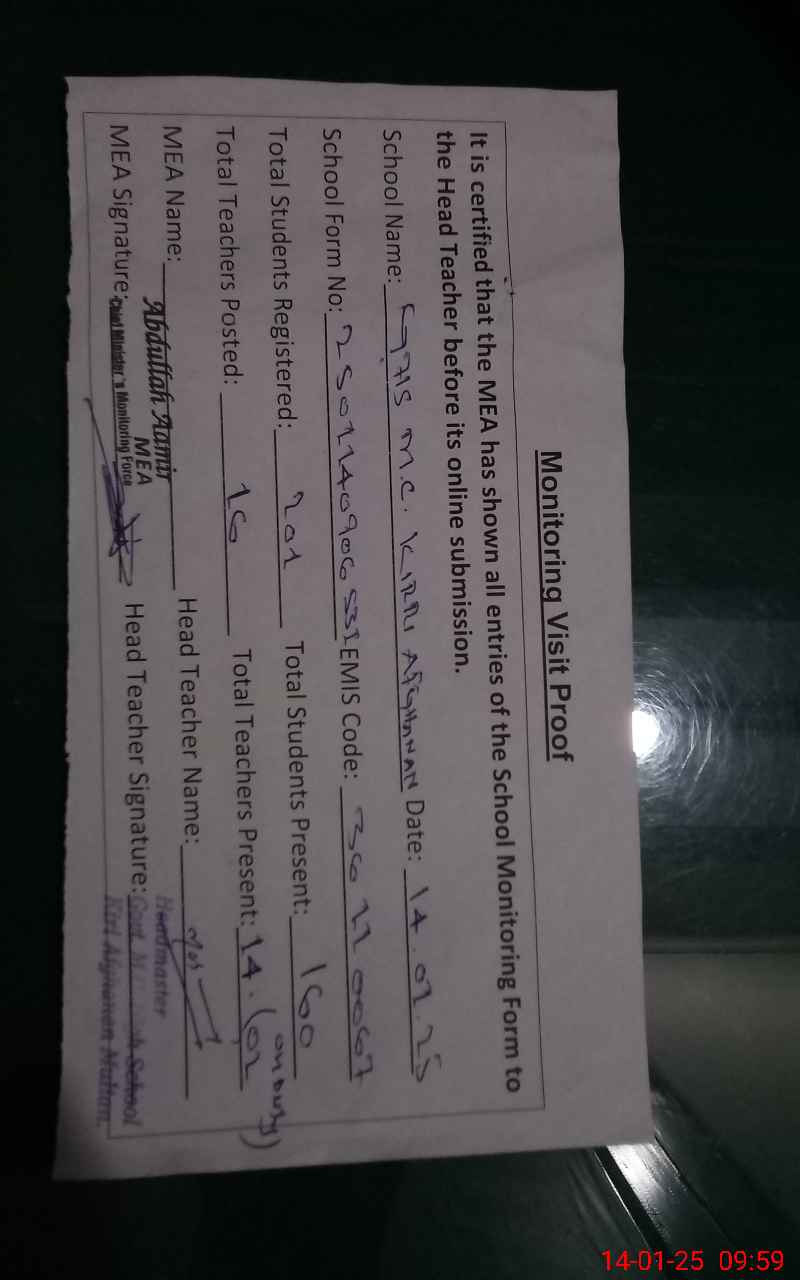 Monitoring Visit Proof
It is certified that the MEA has shown all entries of the School Monitoring Form to
the Head Teacher before its online submission.
School Name: M.C. KIRRI AFGHANAN Date: 14.01.25
School Form No: EMIS Code:
Total Students Registered: 201 Total Students Present: 160
Total Teachers Posted: 16 Total Teachers Present: 14. (02 on Duty)
MEA Name: Abdullah Aamir Head Teacher Name:
MEA
MEA Signature: Chief Minister's Monitoring Force Head Teacher Signature:
Headmaster
Govt. School
Kiri Afghanan Multan.
14-01-25 09:59